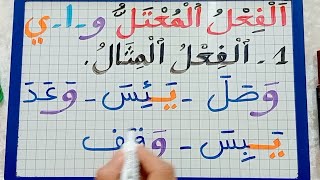 اَلْفِعْلُ الْمُعْتَلُّ و-ا-ي
1 - اَلْفِعْلُ الْمِثَالُ.
وَصَلَ - يَئِسَ - وَعَدَ
يَبِسَ - وَقَف